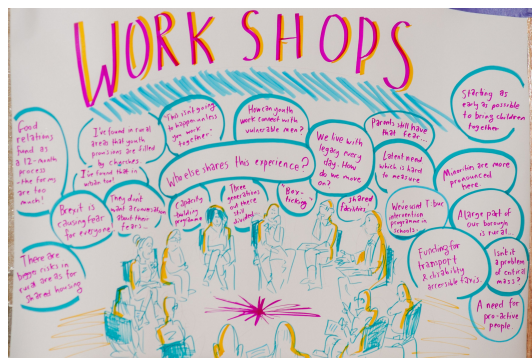 WORK SHOPS
Good
relations
fund as
a 12-month
process
- the forms
are too
much!
I've found in rural
areas that youth
provisions are filled
by churches
I've found that in
urban too!
"This isn't going
to happen unless
you work
together."
How can youth
work connect with
vulnerable men?
Parents still have
that fear...
Starting as
early as possible
to bring children
together
Who else shares this experience?
We live with
legacy every
day. How
do we move
on?
Latent need
which is hard
to measure
Minorities are more
pronounced
here.
Brexit is
causing fear
for everyone!
They don't
want a conversation
about their
fears...
Capacity
building
programme
Three
generations
out there
still
"Box-
ticking"
Shared
facilities
intervention
programme in
schools...
A large part of
our borough
is rural...
There are
bigger risks in
rural areas for
shared housing
Funding for
transport
& disability
accessible taxis.
Isn't it
a problem
of critical
mass?
A need for
pro-active
people